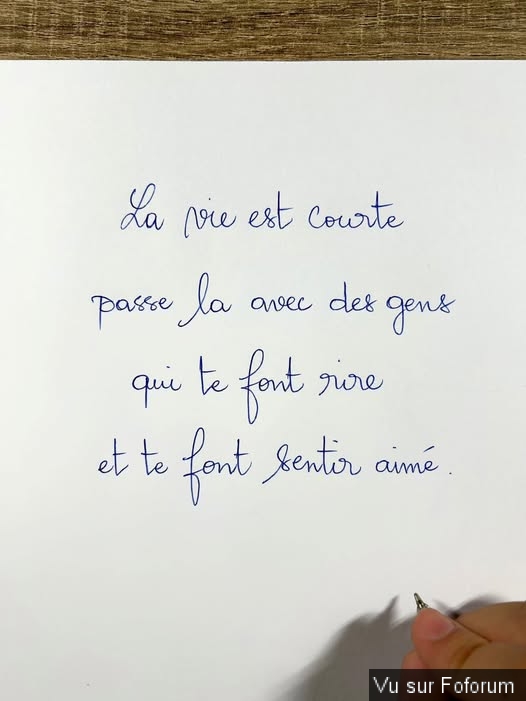 La vie est courte
passe la avec des gens
qui te font rire
et te font sentir aimé.
Vu sur Foforum